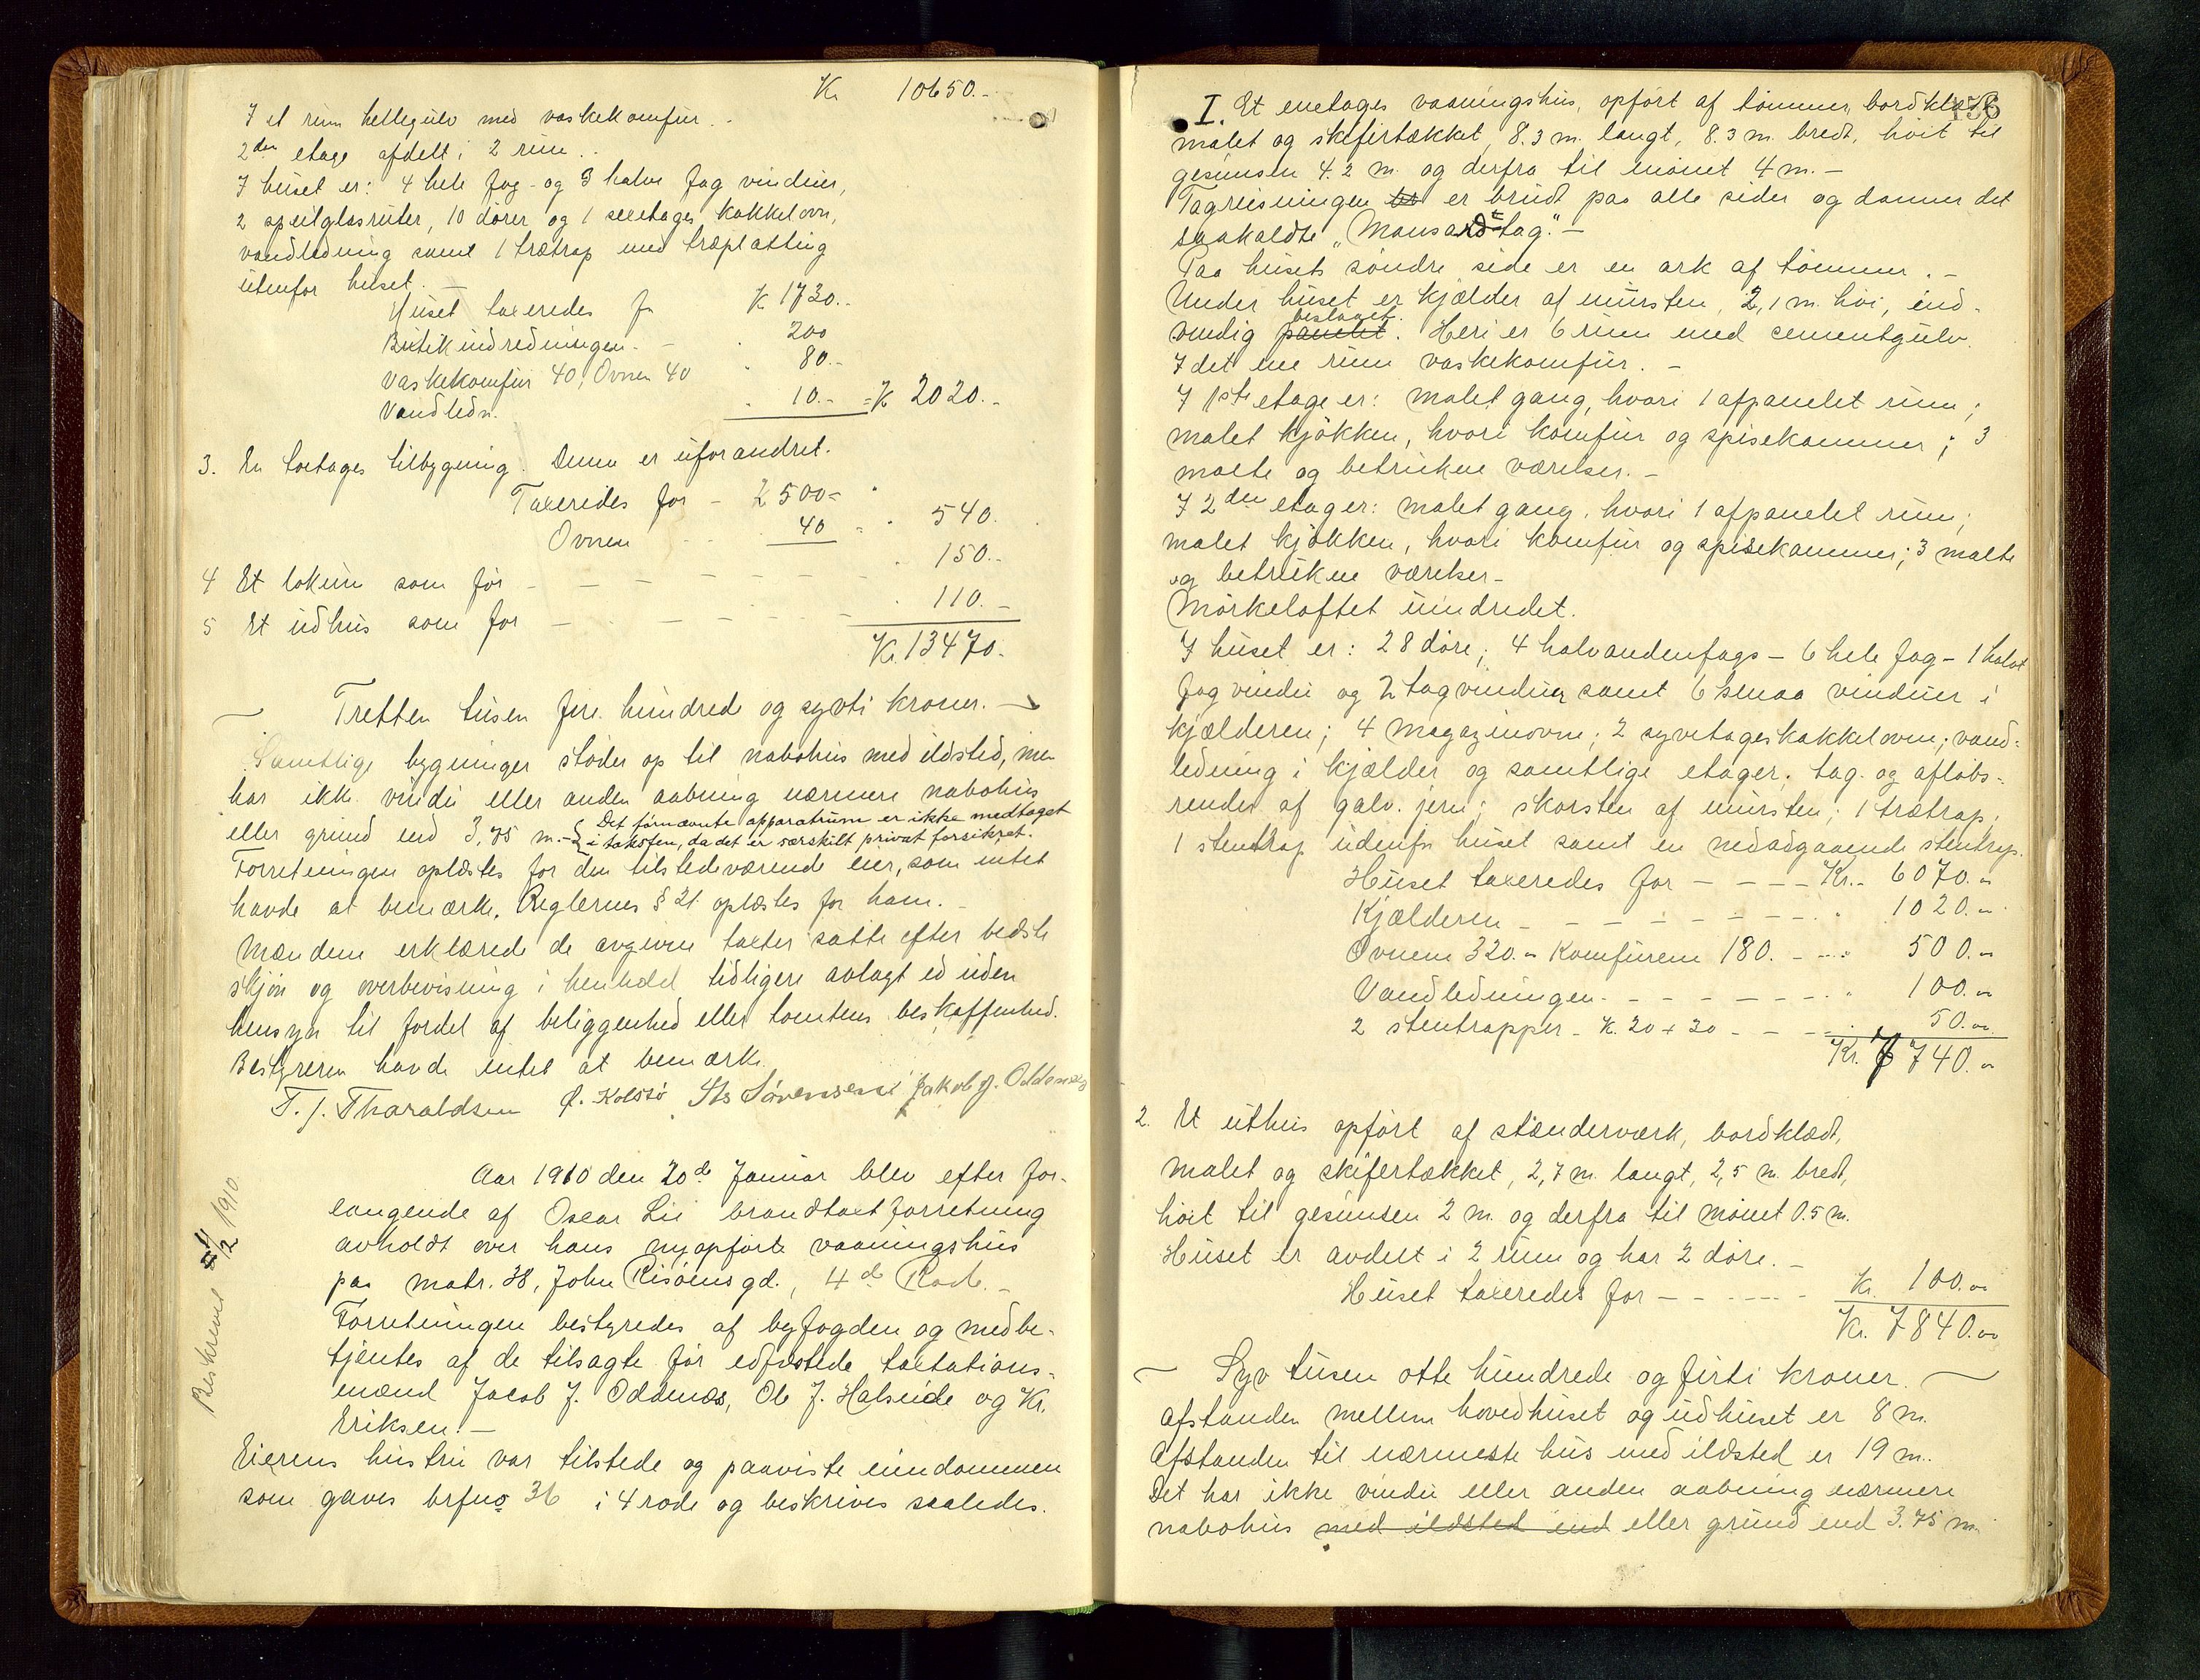 Kr 10650.-
I et rum hellegulv med vaskekomfur.
2den etage afdelt i 2 rum.
I huset er: 4 hele fag- og 3 halve fag vinduer,
2 speilglasruter, 10 dører og 1 sexetages kakkelovn,
vandledning samt 1 trætrap med træplatting
utenfor huset. -
Huset taxeredes for K 1730.-
Butikindredningen - 200
Vaskekomfur 40, Ovnen 40 80.-
Vandledn. 10.- = K 2020.-
3. En toetages tilbygning. Denne er uforandret.
Taxeredes for - 2 500 -
Ovnen 40 - 540.
4 Et lokum som før - 150.-
5 Et udhus som før - 110.-
Kr. 13470.-
Tretten tusen fire hundrede og sytti kroner. -
Samtlige bygninger støder op til nabohus med ildsted, men
har ikke vindu eller anden aabning nærmere nabohus
eller grund end 3,75 m. - { Det førnævnte apparatrum er ikke medtaget
i taksten, da det er særskilt privat forsikret.
Forretningen oplæstes for den tilstedeværende eier, som intet
havde at bemærke. Reglernes § 21 oplæstes for ham. -
Mændene erklærede de avgivne taxter satte efter bedste
skjøn og overbevisning i henhold tidligere avlagt ed uden
hensyn til fordel af beliggenhed eller tomtens beskaffenhed.
Bestyreren havde intet at bemærke.
T. J. Tharaldsen Ø. Kolstø Sts Sørensen Jakob J. Oddenæs
Aar 1910 den 20de Januar blev efter for-
langende af Oscar Lie brandtaxtforretning
avholdt over hans nyopførte vaaningshus
paa matr. 38, John Risøens gd., 4de Rode. -
Forretningen bestyredes af byfogden og medbe-
tjentes af de tilsagte før edfæstede taxtations-
mænd Jacob J. Oddenæs, Ole J. Halseide og Kr.
Eriksen. -
Eierens hustru var tilstede og paaviste eiendommen
som gaves brfno 36 i 4 rode og beskrives saaledes.
Beskrevet 1/2 1910
I. Et enetages vaaningshus, opført af tømmer, bordklædt
malet og skifertækket, 8.3 m. langt, 8.3 m. bredt, høit til
gesimsen 4.2 m. og derfra til mønet 4 m. -
Tagreisningen er brudt paa alle sider og danner det
saakaldte "Mansardtag". -
Paa husets søndre side er en ark af tømmer. -
Under huset er kjælder af mursten, 2,1 m. høi, ind-
vendig panelet beslaget. Heri er 6 rum med cementgulv.
I det ene rum vaskekomfur. -
I 1ste etage er: malet gang, hvori 1 afpanelet rum;
malet kjøkken, hvori komfur og spisekammer; 3
malte og betrukne værelser. -
I 2den etage er: malet gang, hvori 1 afpanelet rum;
malet kjøkken, hvori komfur og spisekammer; 3 malte
og betrukne værelser -
Mørkeloftet uindredet.
I huset er: 28 døre; 4 halvandenfags - 6 hele fag - 1 halvt
fag vindu og 2 tagvinduer samt 6 smaa vinduer i
kjælderen; 4 magazinovne; 2 syvetages kakkelovne; vand-
ledning i kjælder og samtlige etager; tag- og afløbs-
render af galv. jern; skorsten af mursten; 1 trætrap;
1 stentrap udenfor huset samt en nedadgaaende stentrap.
Huset taxeredes for - - - - Kr. 6070.-
Kjælderen - - - - 1020.-
Ovnene 320.- Komfurene 180. - 500.-
Vandledningen - - - - 100.-
2 stentrapper - K. 20 + 30 - - - 50.-
Kr. 7740.-
2. Et uthus opført af stænderværk, bordklædt,
malet og skifertækket, 2,7 m. langt, 2,5 m. bredt,
høit til gesimsen 2 m. og derfra til mønet 0.5 m.
Huset er avdelt i 2 rum og har 2 døre. -
Huset taxeredes for - - - - Kr. 100.-
Kr. 7840.-
Syv tusen otte hundrede og firti kroner. -
Afstanden mellem hovedhuset og udhuset er 8 m.
Afstanden til nærmeste hus med ildsted er 19 m.
Det har ikke vindu eller anden aabning nærmere
nabohus med ildsted end eller grund end 3.75 m.